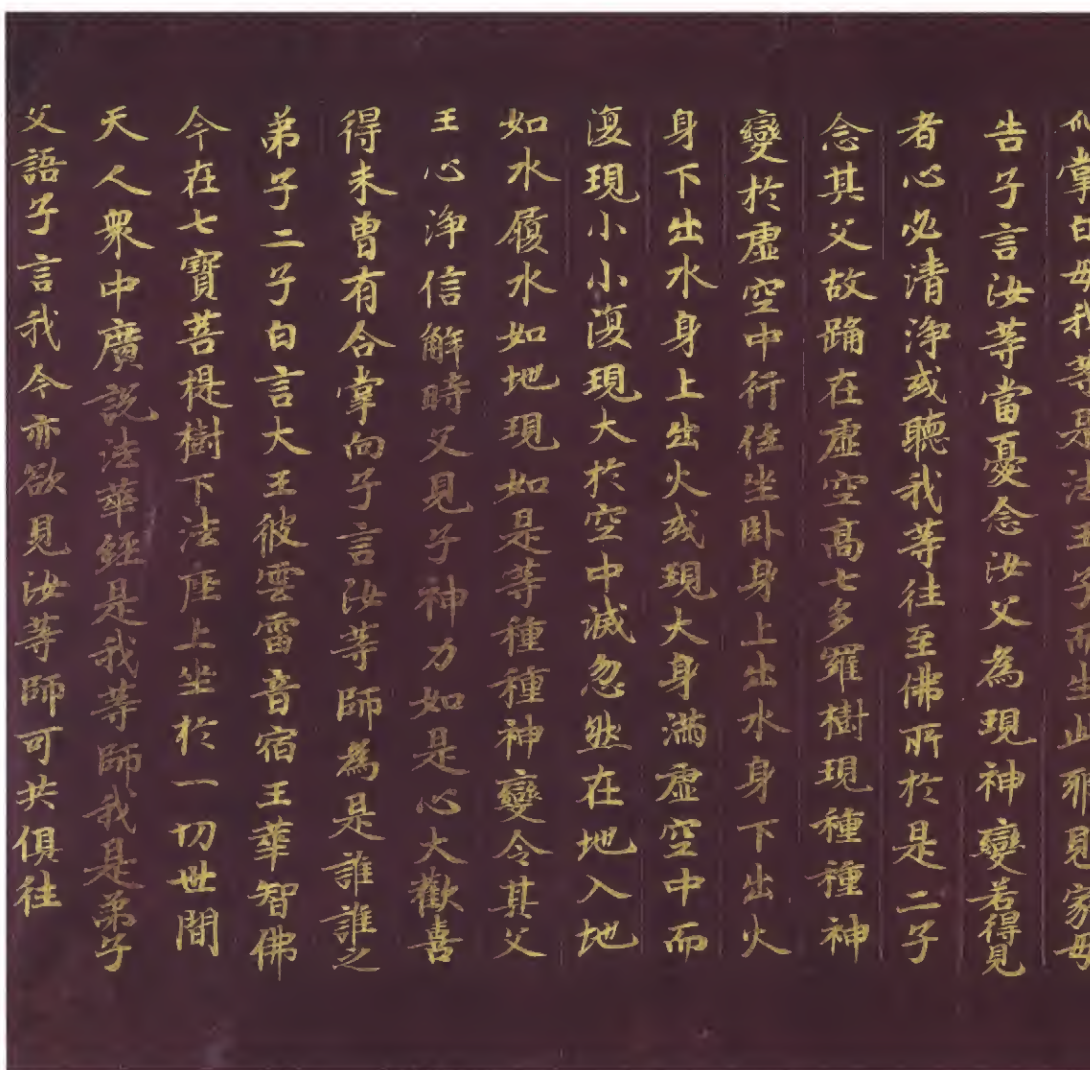 掌白母我等是法王子而生此邪見家母
告子言汝等當憂念汝父為現神變若得見
者心必清淨或聽我等往至佛所於是二子
念其父故踊在虛空高七多羅樹現種種神
變於虛空中行住坐卧身上出水身下出火
身下出水身上出火或現大身滿虛空中而
復現小小復現大於空中滅忽然在地入地
如水履水如地現如是等種種神變令其父
王心淨信解時父見子神力如是心大歡喜
得未曾有合掌向子言汝等師為是誰誰之
弟子二子白言大王彼雲雷音宿王華智佛
今在七寶菩提樹下法座上坐於一切世間
天人衆中廣説法華經是我等師我是弟子
父語子言我今亦欲見汝等師可共俱往